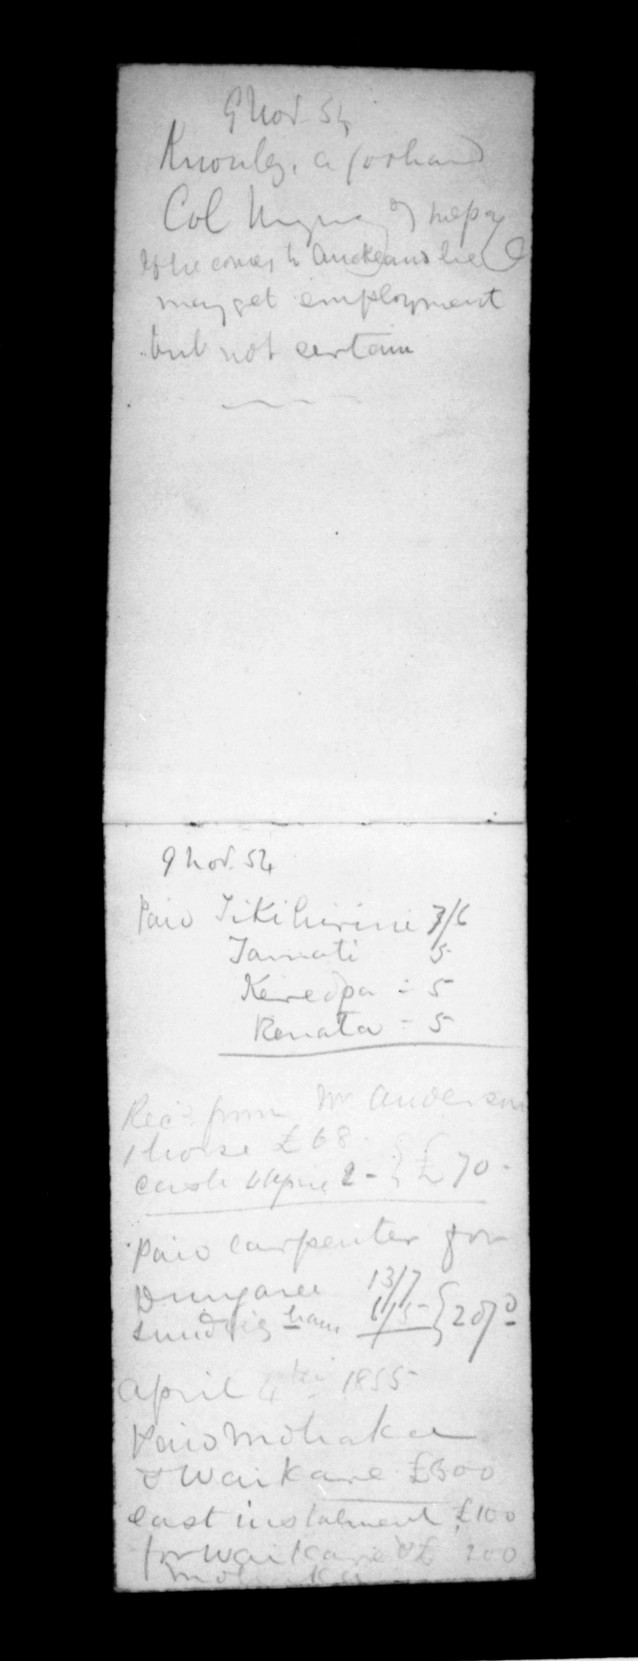 9 Nov. 54
Knowles, a
Col of
If he comes to Auckland he
may get employment
but not certain
9 Nov. 54
Paid Tikihirini 7/6
Tamati 5
Kereopa - 5
Renata - 5
Recd from Mr Anderson
1 horse £68
cash 2 - } £70 -
Paid carpenter for
Dungaree 13/7
sundries 6/5 } 20/0
April 4th 1855
Paid Mohaka
& Waikare £300
last instalment £100
for Waikare & £200
Mohaka